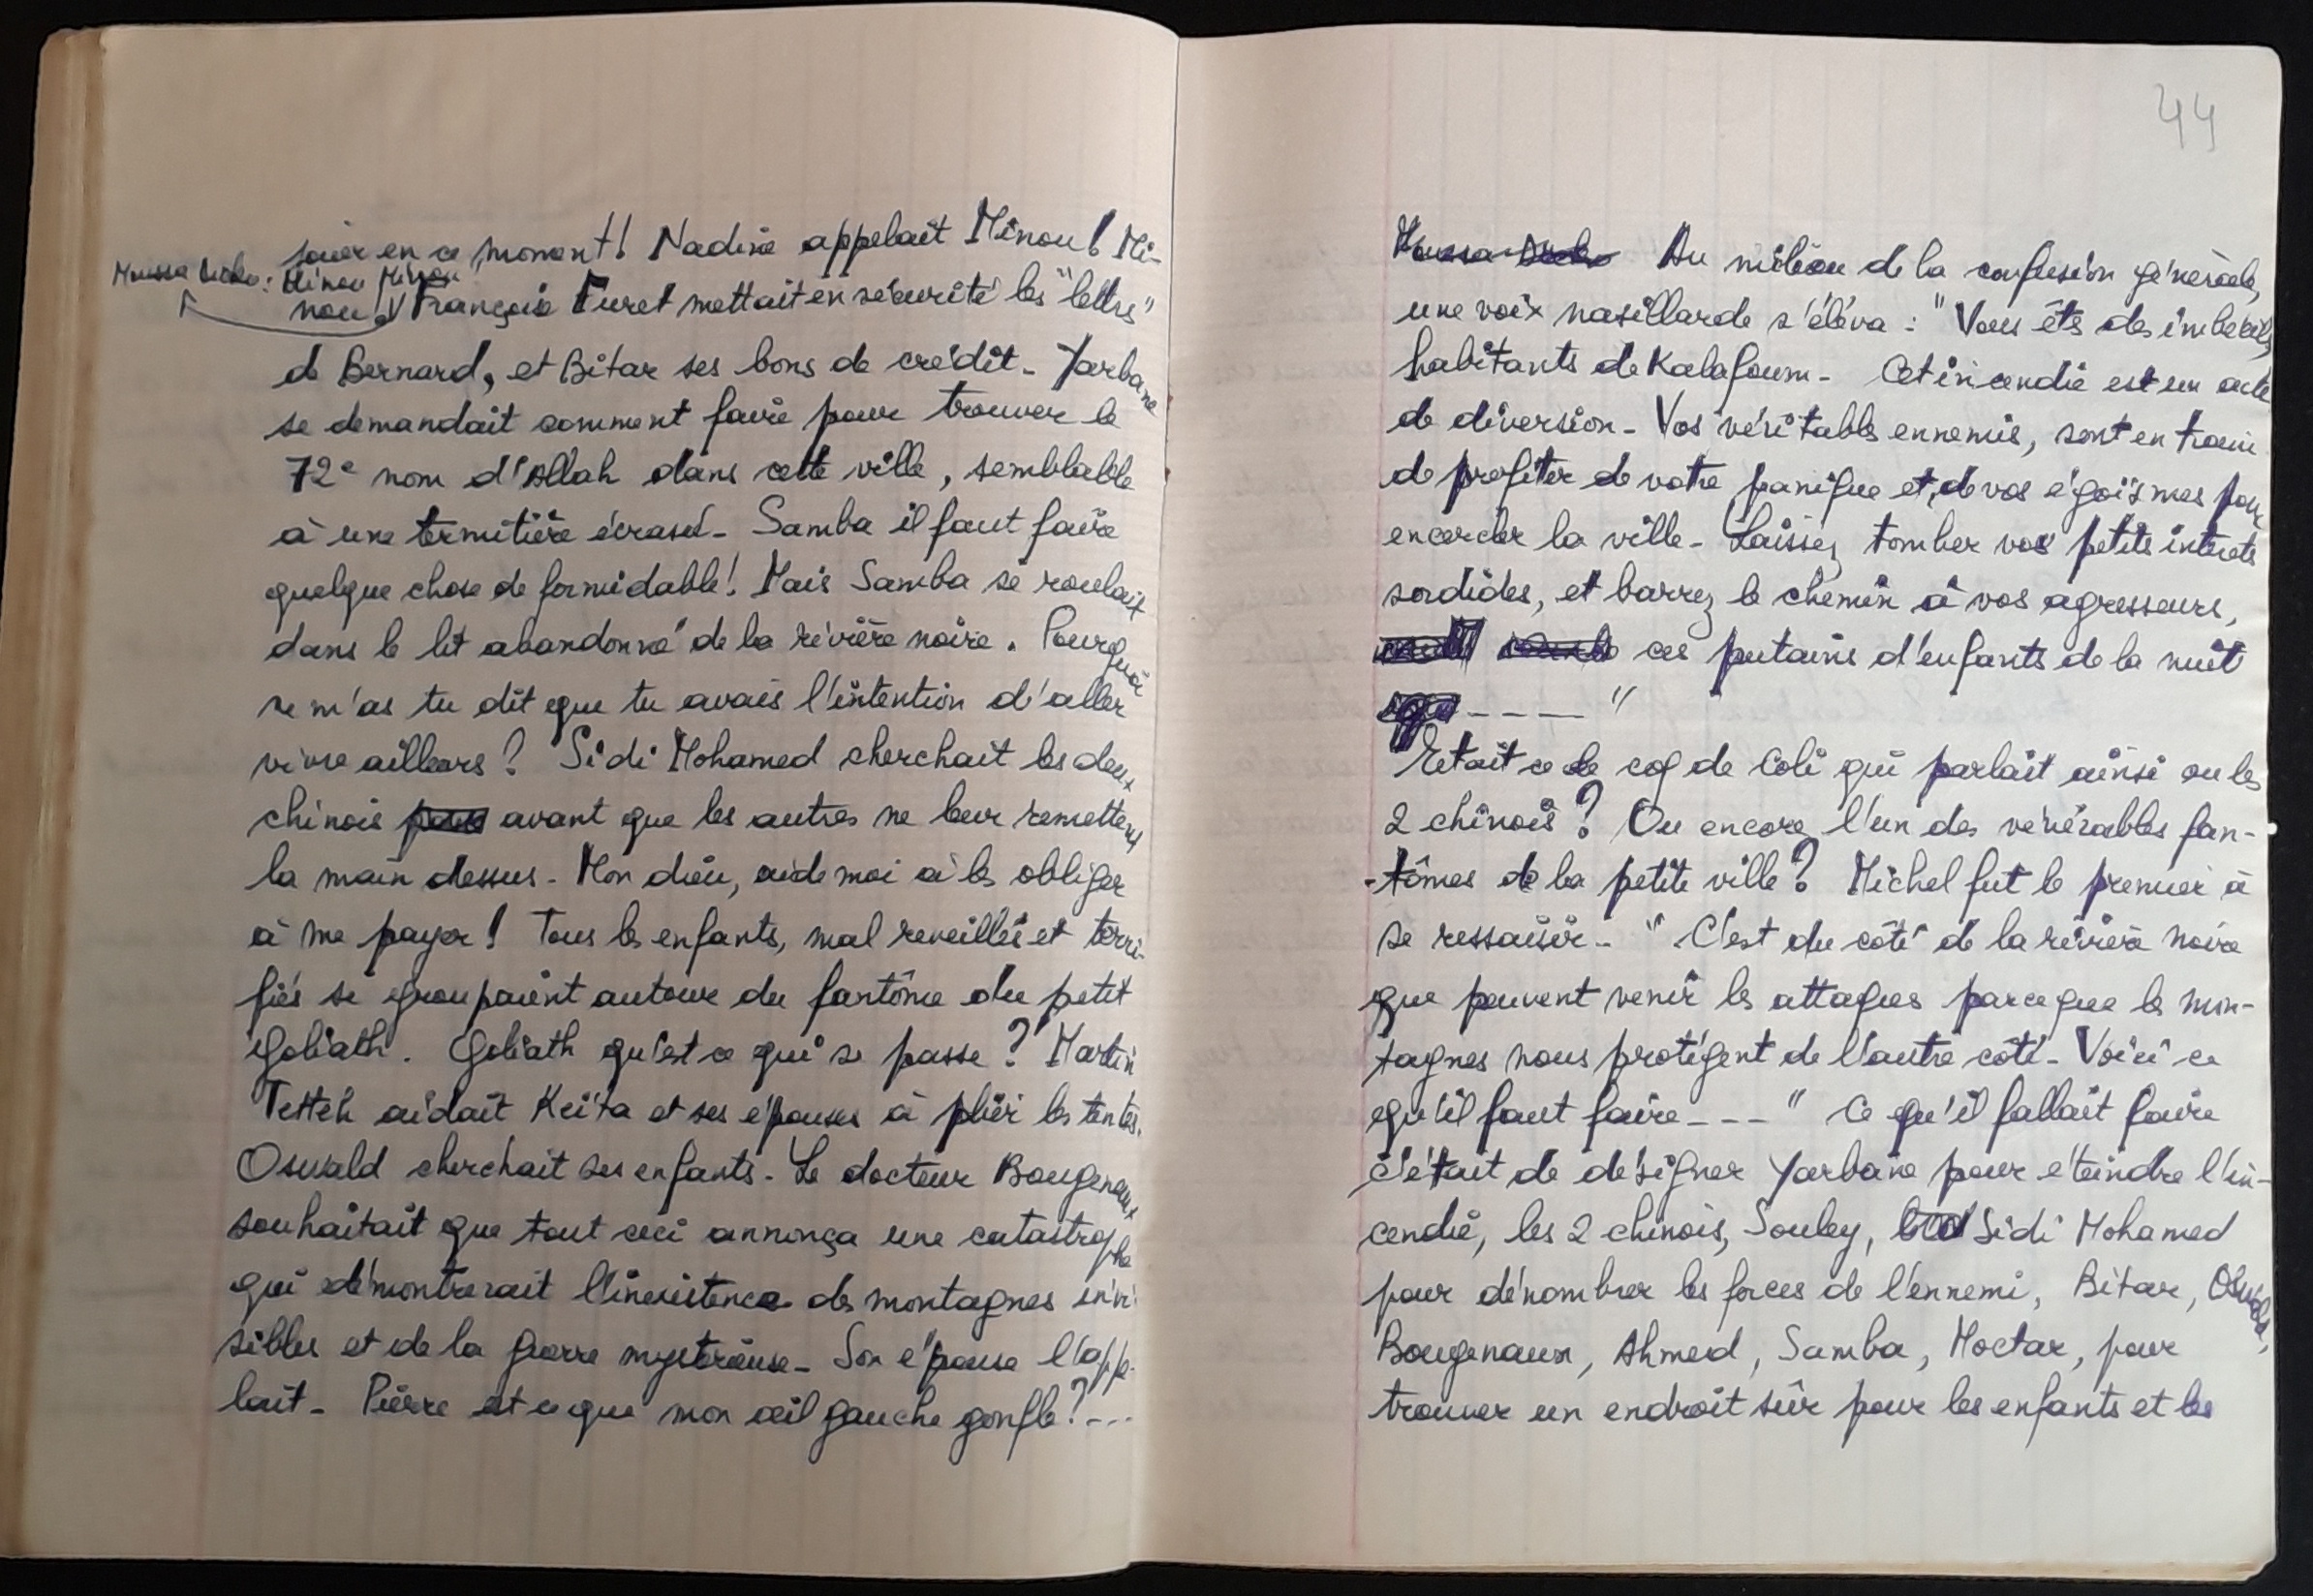 jouer en ce moment! Nadine appelait Minou! Mi-
Moussa : Minou Minou
nou! François Furet mettait en sécurité les "lettres"
de Bernard, et Bitar ses bons de crédit - Yarbane
se demandait comment faire pour trouver le
72e nom d'Allah dans cette ville, semblable
à une termitière écrasé - Samba il faut faire
quelque chose de formidable! Mais Samba se roulait
dans le lit abandonné de la rivière noire. Pourquoi
ne m'as tu dit que tu avais l'intention d'aller
vivre ailleurs? Sidi Mohamed cherchait les deux
chinois avant que les autres ne leur remettent
la main dessus - Mon dieu, aide moi à les obliger
à me payer! Tous les enfants, mal reveillés et terri-
fiés se groupaient autour du fantôme du petit
Goliath. Goliath qu'est ce qui se passe? Martin
Tetteh aidait Keïta et ses épouses à plier les tentes.
Oswald cherchait ses enfants - Le docteur Bougenaux
souhaitait que tout ceci annonça une catastrophe
qui démontrerait l'inexistence des montagnes invi-
sibles et de la pierre mysterieuse - Son épouse l'appe-
lait - Pierre est ce que mon œil gauche gonfle? - - -
44
Moussa Au milieu de la confusion générale,
une voix nasillarde s'éléva : "Vous êtes des imbeciles,
habitants de Kalafoum - Cet incendie est un acte
de diversion - Vos véritables ennemis, sont en train
de profiter de votre panique et de vos égoïsmes pour
encercler la ville - Laissez tomber vos petits intérets
sordides, et barrez le chemin à vos agresseurs,
ces putains d'enfants de la nuit
- - - - "
Etait ce le coq de Coli qui parlait ainsi ou les
2 chinois? Ou encore l'un des vénérables fan-
-tômes de la petite ville? Michel fut le premier à
se ressaisir - "C'est du côté de la rivière noire
que peuvent venir les attaques parce que les mon-
tagnes nous protégent de l'autre côté - Voici ce
qu'il faut faire - - - " Ce qu'il fallait faire
c'était de désigner Yarbane pour éteindre l'in-
cendie, les 2 chinois, Souley, Sidi Mohamed
pour dénombrer les forces de l'ennemi, Bitar, Oswald,
Bougenaux, Ahmed, Samba, Moctar, pour
trouver un endroit sûr pour les enfants et les